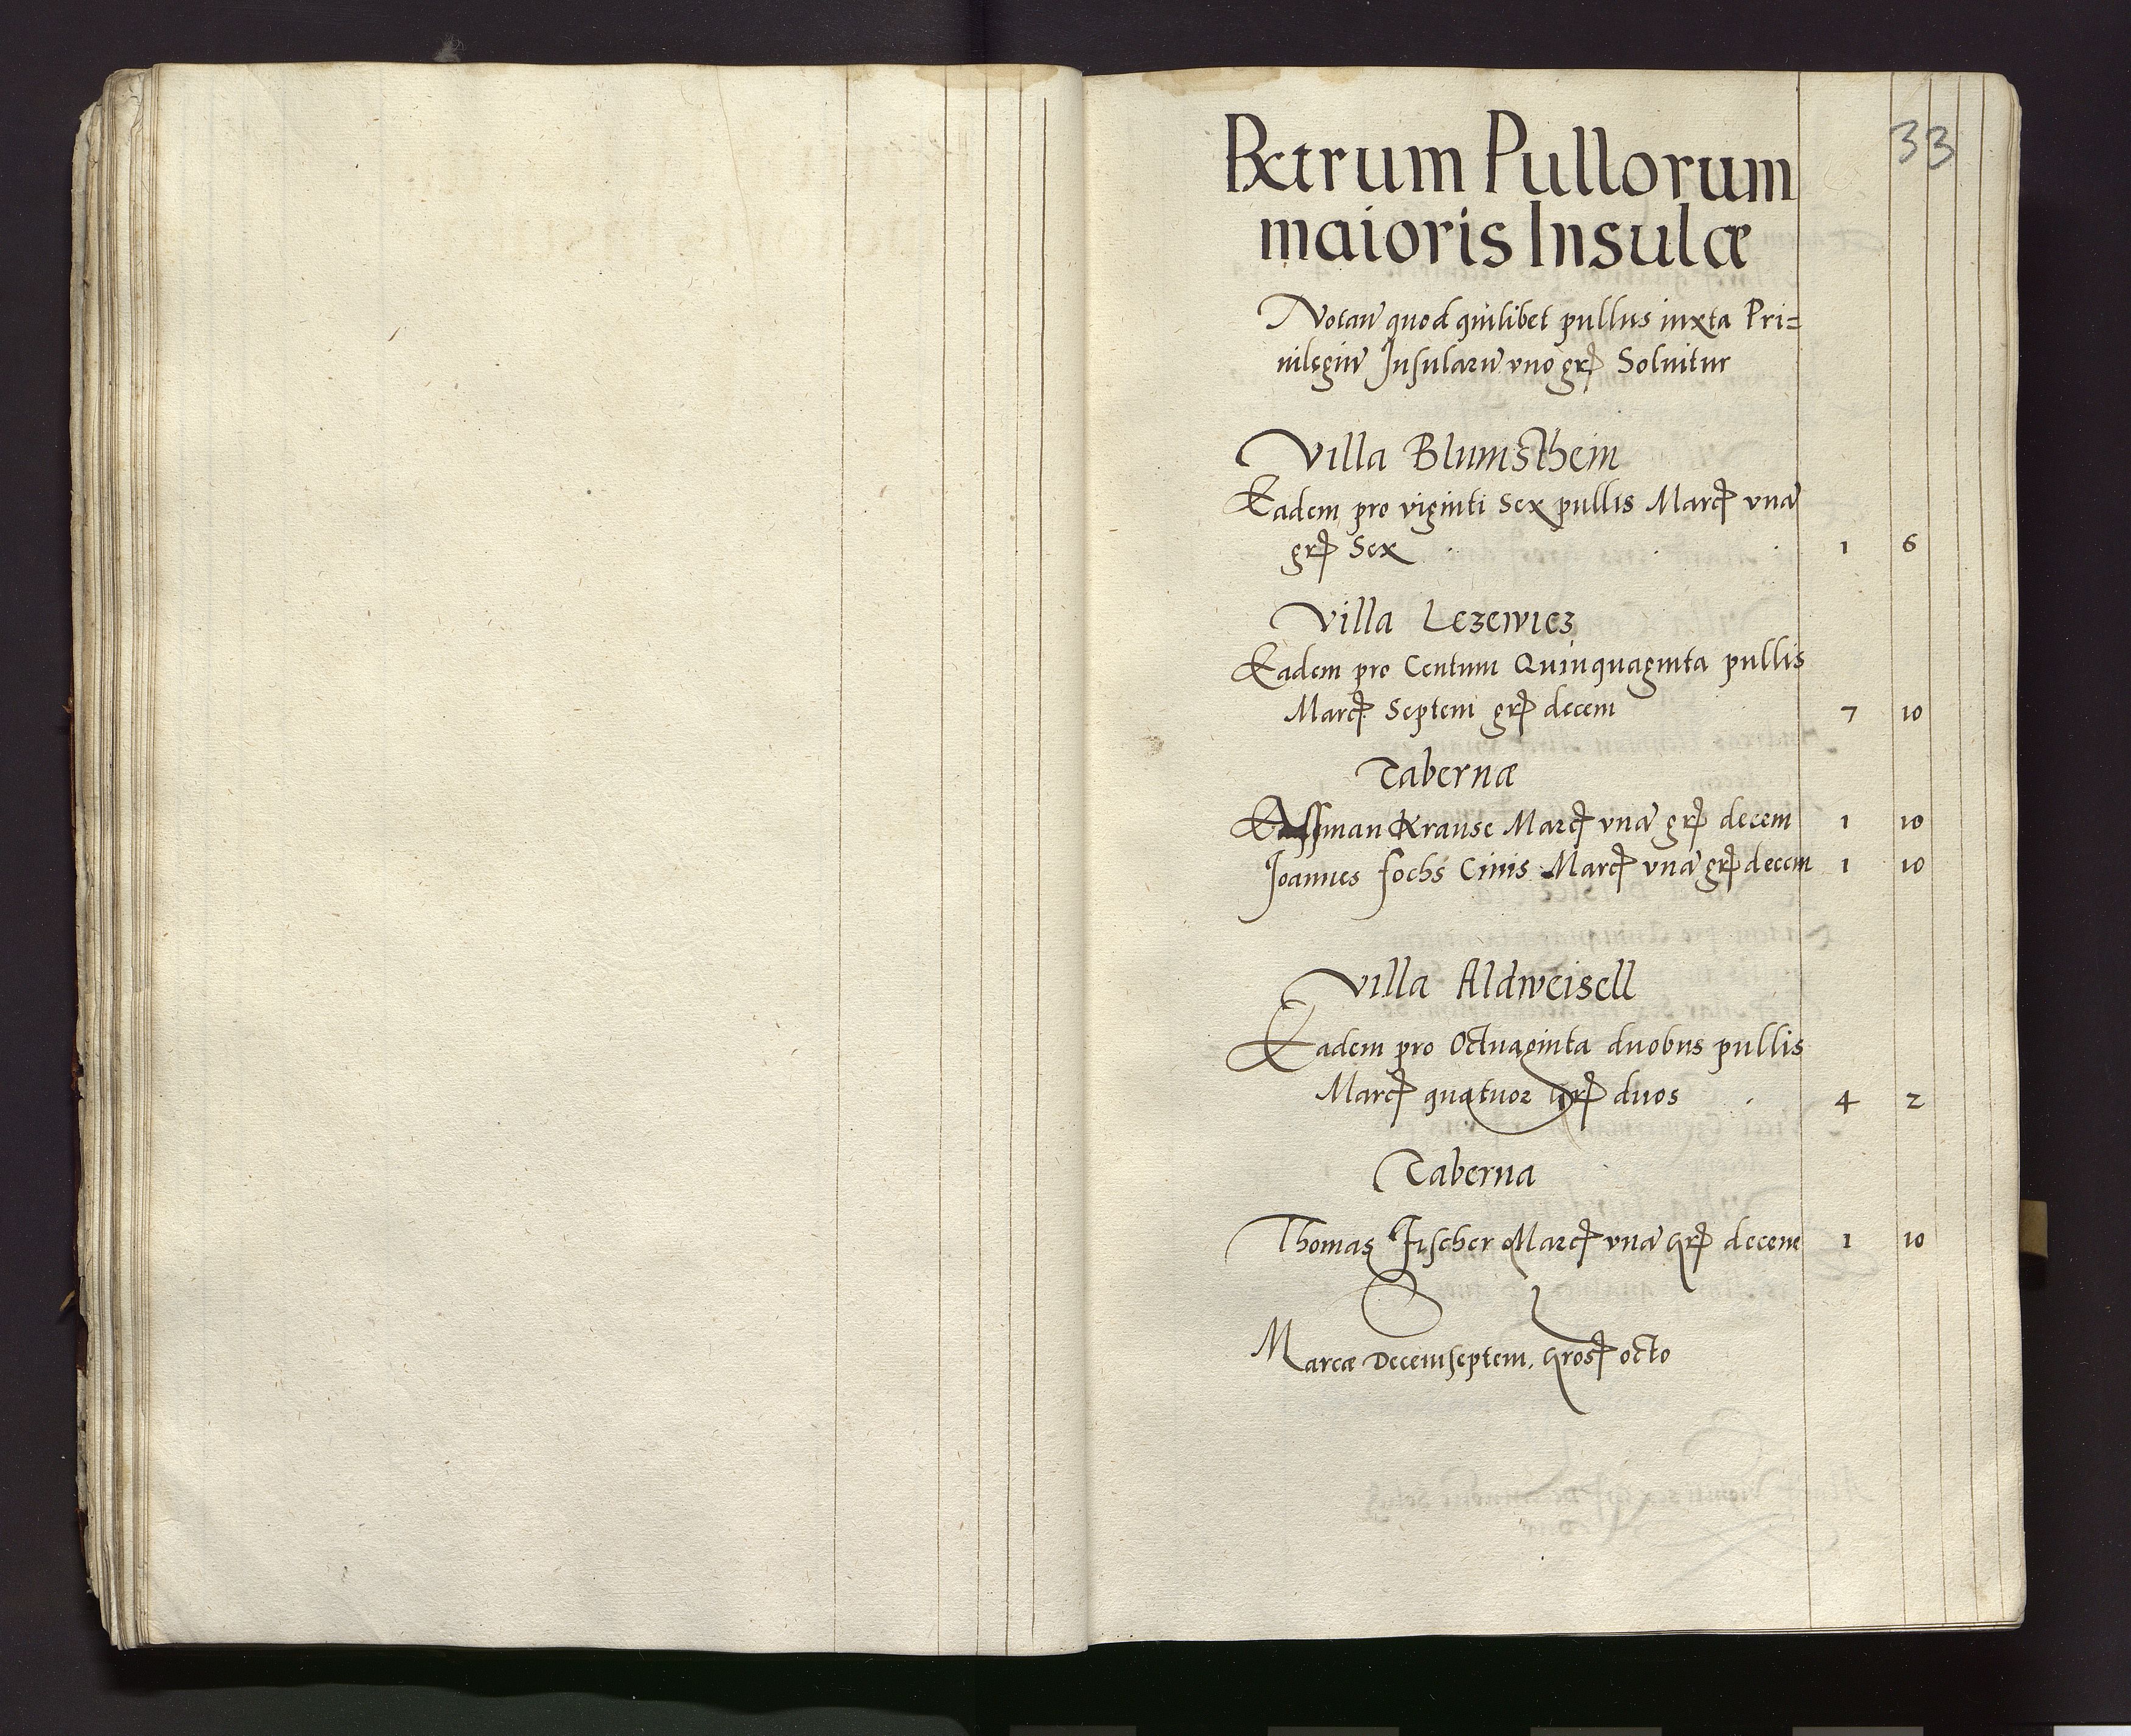 33
Rctrum Pullorum
maioris Insulæ
Notan̄ quod quilibet pullus iuxta Pri=
uilegiū Insularū vno gr̄ Soluitur
Villa Blumsthein
Eadem pro viginti Sex pullis Marc̄ vnā
gr̄ Sex 1 6
Villa Lezewicz
Eadem pro Centum Quinquaginta pullis
Marc̄ Septem gr̄ decem 7 10
Tabernæ
Assman Krause Marc̄ vnā gr̄ decem 1 10
Joannes fochs Ciuis Marc̄ vnā gr̄ decem 1 10
Villa Aldweisell
Eadem pro Octuaginta duobus pullis
Marc̄ quatuor gr̄ duos 4 2
Taberna
Thomas Fischer Marc̄ vnā gr̄ decem 1 10
Marcæ Decemseptem, gros̄ octo